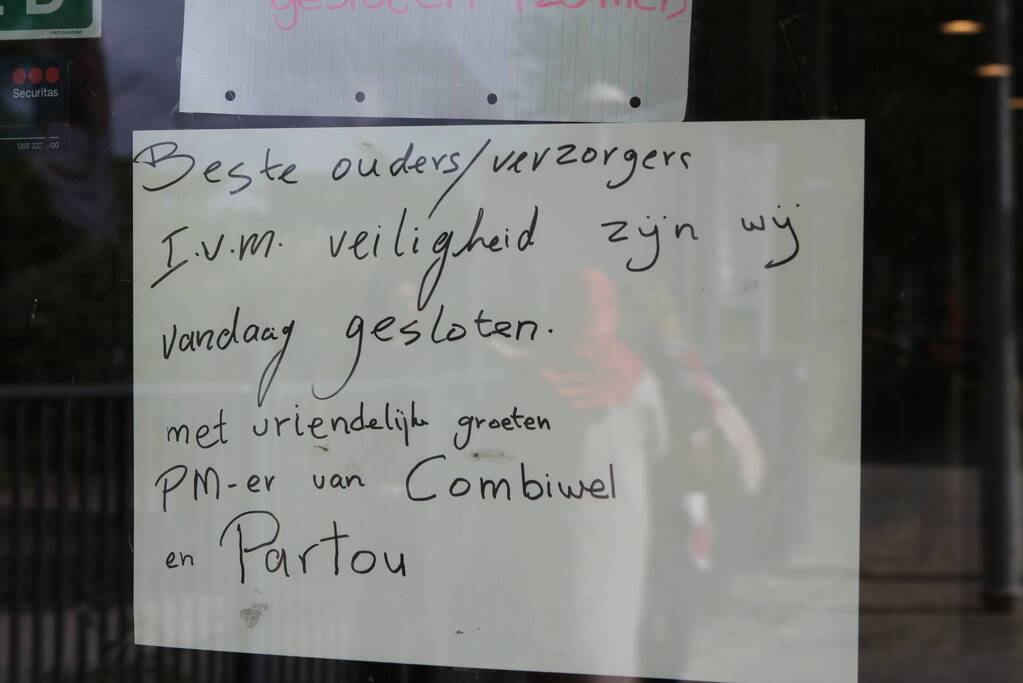 gesloten
Securitas
Beste ouders/verzorgers
I.v.m. veiligheid zijn wij
vandaag gesloten.
met vriendelijke groeten
PM-er van Combiwel
en Partou